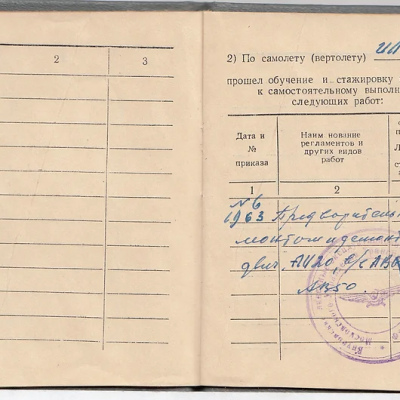 2
3
2) По самолету (вертолету) ИЛ
прошел обучение и стажировку
к самостоятельному выполн
следующих работ:
Дата и
№
приказа
Наим нование
регламентов и
других видов
работ
1
2
№6
1963 Предварительн
монтаж и демонт
двиг. АИ20,
АВ50.